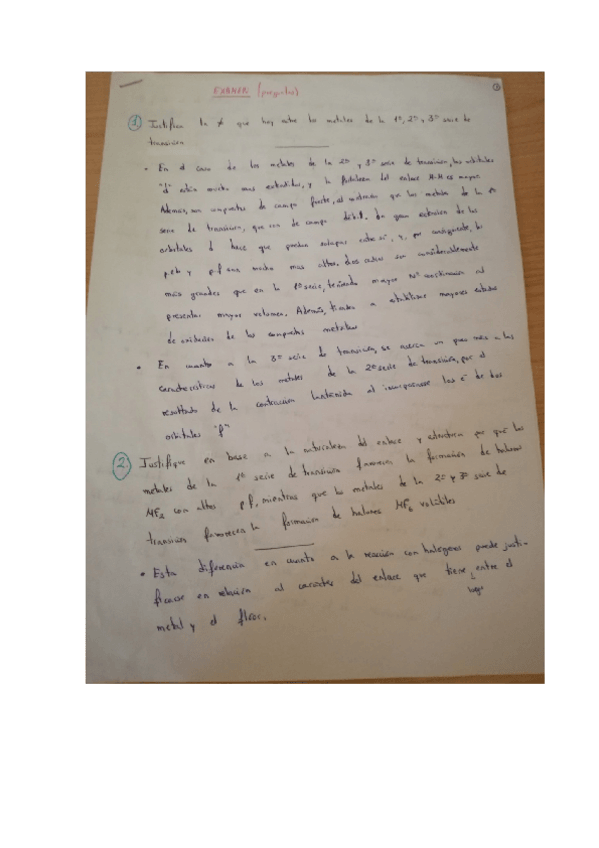 EXAMEN (preguntas)
1) Justifica la ≠ que hay entre los metales de la 1º, 2º y 3º serie de
transición
• En el caso de los metales de la 2º y 3º serie de transición, los orbitales
"d" están mucho mas extendidos, y la fortaleza del enlace M-M es mayor.
Además, son compuestos de campo fuerte, al contrario que los metales de la 1º
serie de transición, que son de campo débil. La gran extensión de los
orbitales d hace que puedan solapar entre sí, y, por consiguiente, los
p.eb y p.f son mucho mas altos. Los son considerablemente
más grandes que en la 1º serie, teniendo mayor Nº coordinación al
presentar mayor volumen. Además, tienden a estabilizar mayores estados
de oxidación de los compuestos metálicos
• En cuanto a la 3º serie de transición, se acerca un poco más a las
características de los metales de la 2º serie de transición, por el
resultado de la contracción lantánida al incorporarse los e⁻ de los
orbitales "f"
2) Justifique en base a la naturaleza del enlace y estructura por qué los
metales de la 1º serie de transición favorecen la formación de haluros
MF₂ con altos p.f, mientras que los metales de la 2º y 3º serie de
transición favorecen la formación de haluros MF₆ volátiles
• Esta diferencia en cuanto a la reacción con halógenos puede justi-
ficarse en relación al carácter del enlace que tiene entre el
metal y el flúor.